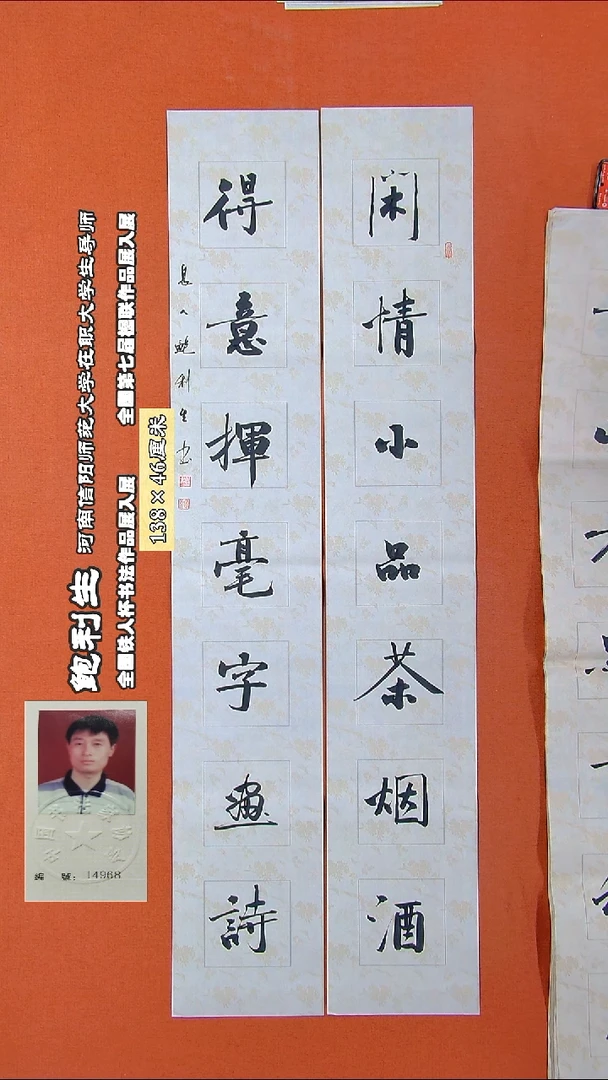 閑情小品茶烟酒
得意揮毫字畫詩
鮑利生書
138×46厘米
全国第七届楹联作品展入展
全国铁人杯书法作品展入展
河南信阳师范大学在职大学生导师
鲍利生
編 號：14968